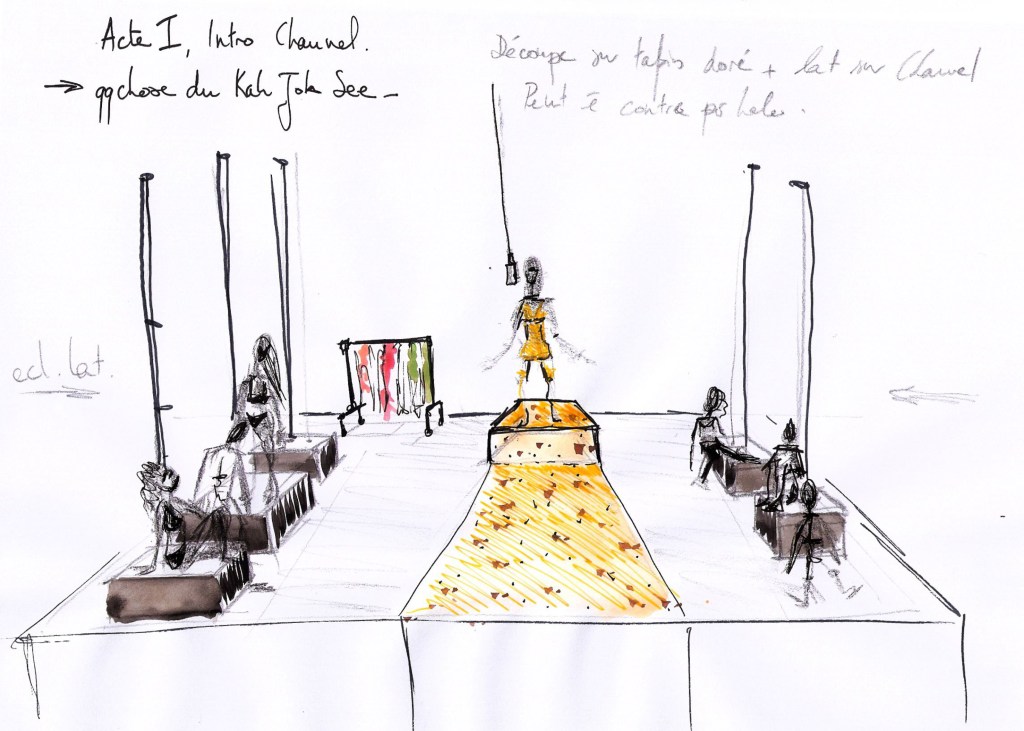 Acte I, Intro Channel.
→ qqchose du Kah Jola See –
Découpe sur tapis doré + lat sur Channel
Peut ê contre ps
ecl. lat.